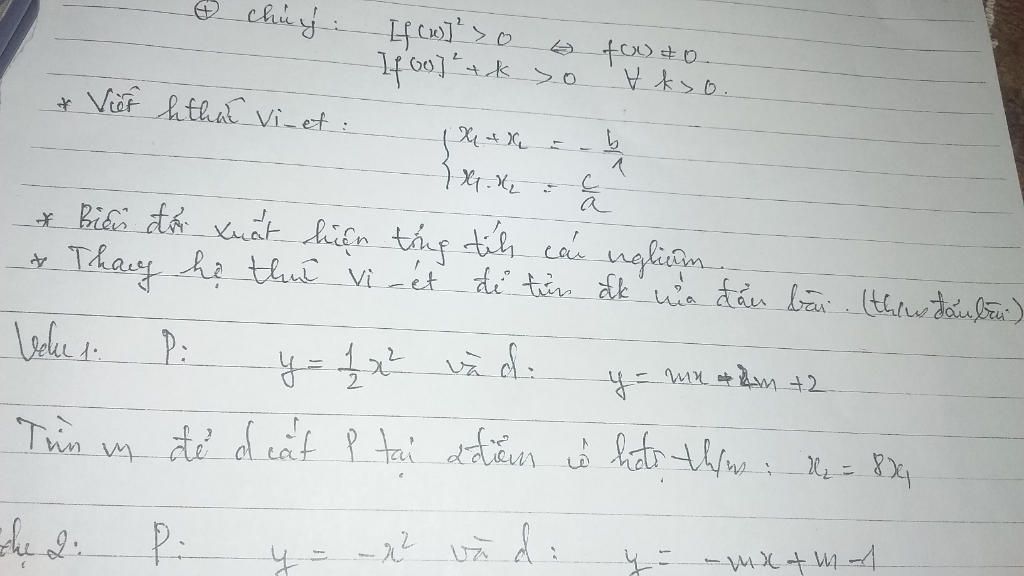 ⊕ chú ý: [f(x)]² > 0 ⇔ f(x) ≠ 0.
[f(x)]² + k > 0 ∀ k > 0.
* Viết hthức Vi-et:
x₁ + x₂ = -b/1
x₁.x₂ = c/a
* Biến đổi xuất hiện tổng tích các nghiệm.
* Thay hệ thức Vi-ét để tìm đk của đầu bài. (th/m đầu bài)
Vdụ 1: P: y = 1/2 x² và d: y = mx + m + 2
Tìm m để d cắt P tại 2 điểm có hđộ th/m: x₂ = 8x₁
dụ 2: P: y = -x² và d: y = -mx + m - 1